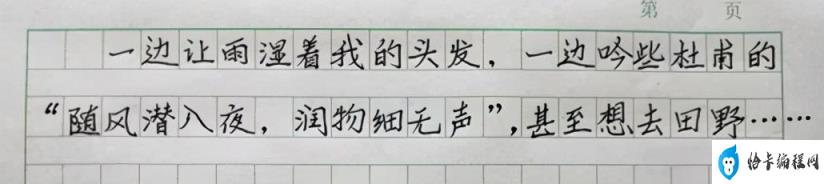 第 页
一边让雨湿着我的头发，一边吟些杜甫的
“随风潜入夜，润物细无声”，甚至想去田野……
恰卡编程网